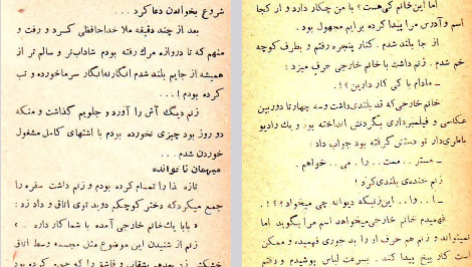 شروع بخواندن دعا کرد ...
بعد از چند دقیقه ملا خداحافظی کرد و رفت و
منهم که تا دروازه مرگ رفته بودم شاداب‌تر و سالم تر از
همیشه از جایم بلند شدم انگار نه انگار سرما خورده و تب
کرده بودم !...
زنم دیگ آش را آورد و جلویم گذاشت و منکه
دو روز بود چیزی نخورده بودم با اشتهای کامل مشغول
خوردن شدم ...
میهمان ناخوانده
تازه غذا را تمام کرده بودم و زنم داشت سفره را
جمع میکرد که دختر کوچکم دوید توی اتاق و داد زد :
« بابا یک خانم خارجی آمده با شما کار داره ... »
زنم از شنیدن این موضوع مثل مجسمه وسط اتاق
خشکش زد بعدهم بشقاب و قاشق را که جمع کرده بود
اما این خانم کی هست؟ با من چکار دارد و از کجا
اسم و آدرس مرا پیدا کرده برایم مجهول بود.
از جا بلند شدم. کنار پنجره رفتم و بطرف کوچه
خم شدم. زنم داشت با خانم خارجی حرف میزد:
ـ مادام با کی کار دارین؟!.
خانم خارجی که قد بلندی داشت و سه چهار تا دوربین
عکاسی و فیلمبرداری بگردنش انداخته بود و یک رادیو
باطری‌دار تو دستش گرفته بود جواب داد:
ـ مستر .. ممت .. را .. می .. خواهم.
زنم خنده‌ی بلندی کرد!
ـ ا .. وا .. این زنیکه دیوانه چی میخواد؟!؟.
فهمیدم خانم خارجی میخواهد اسم مرا بگوید اما
نمیتواند و زنم هم حرف او را بد جوری فهمیده و ممکن
است کار بیخ پیدا کند. بسرعت لباس پوشیدم و رفتم